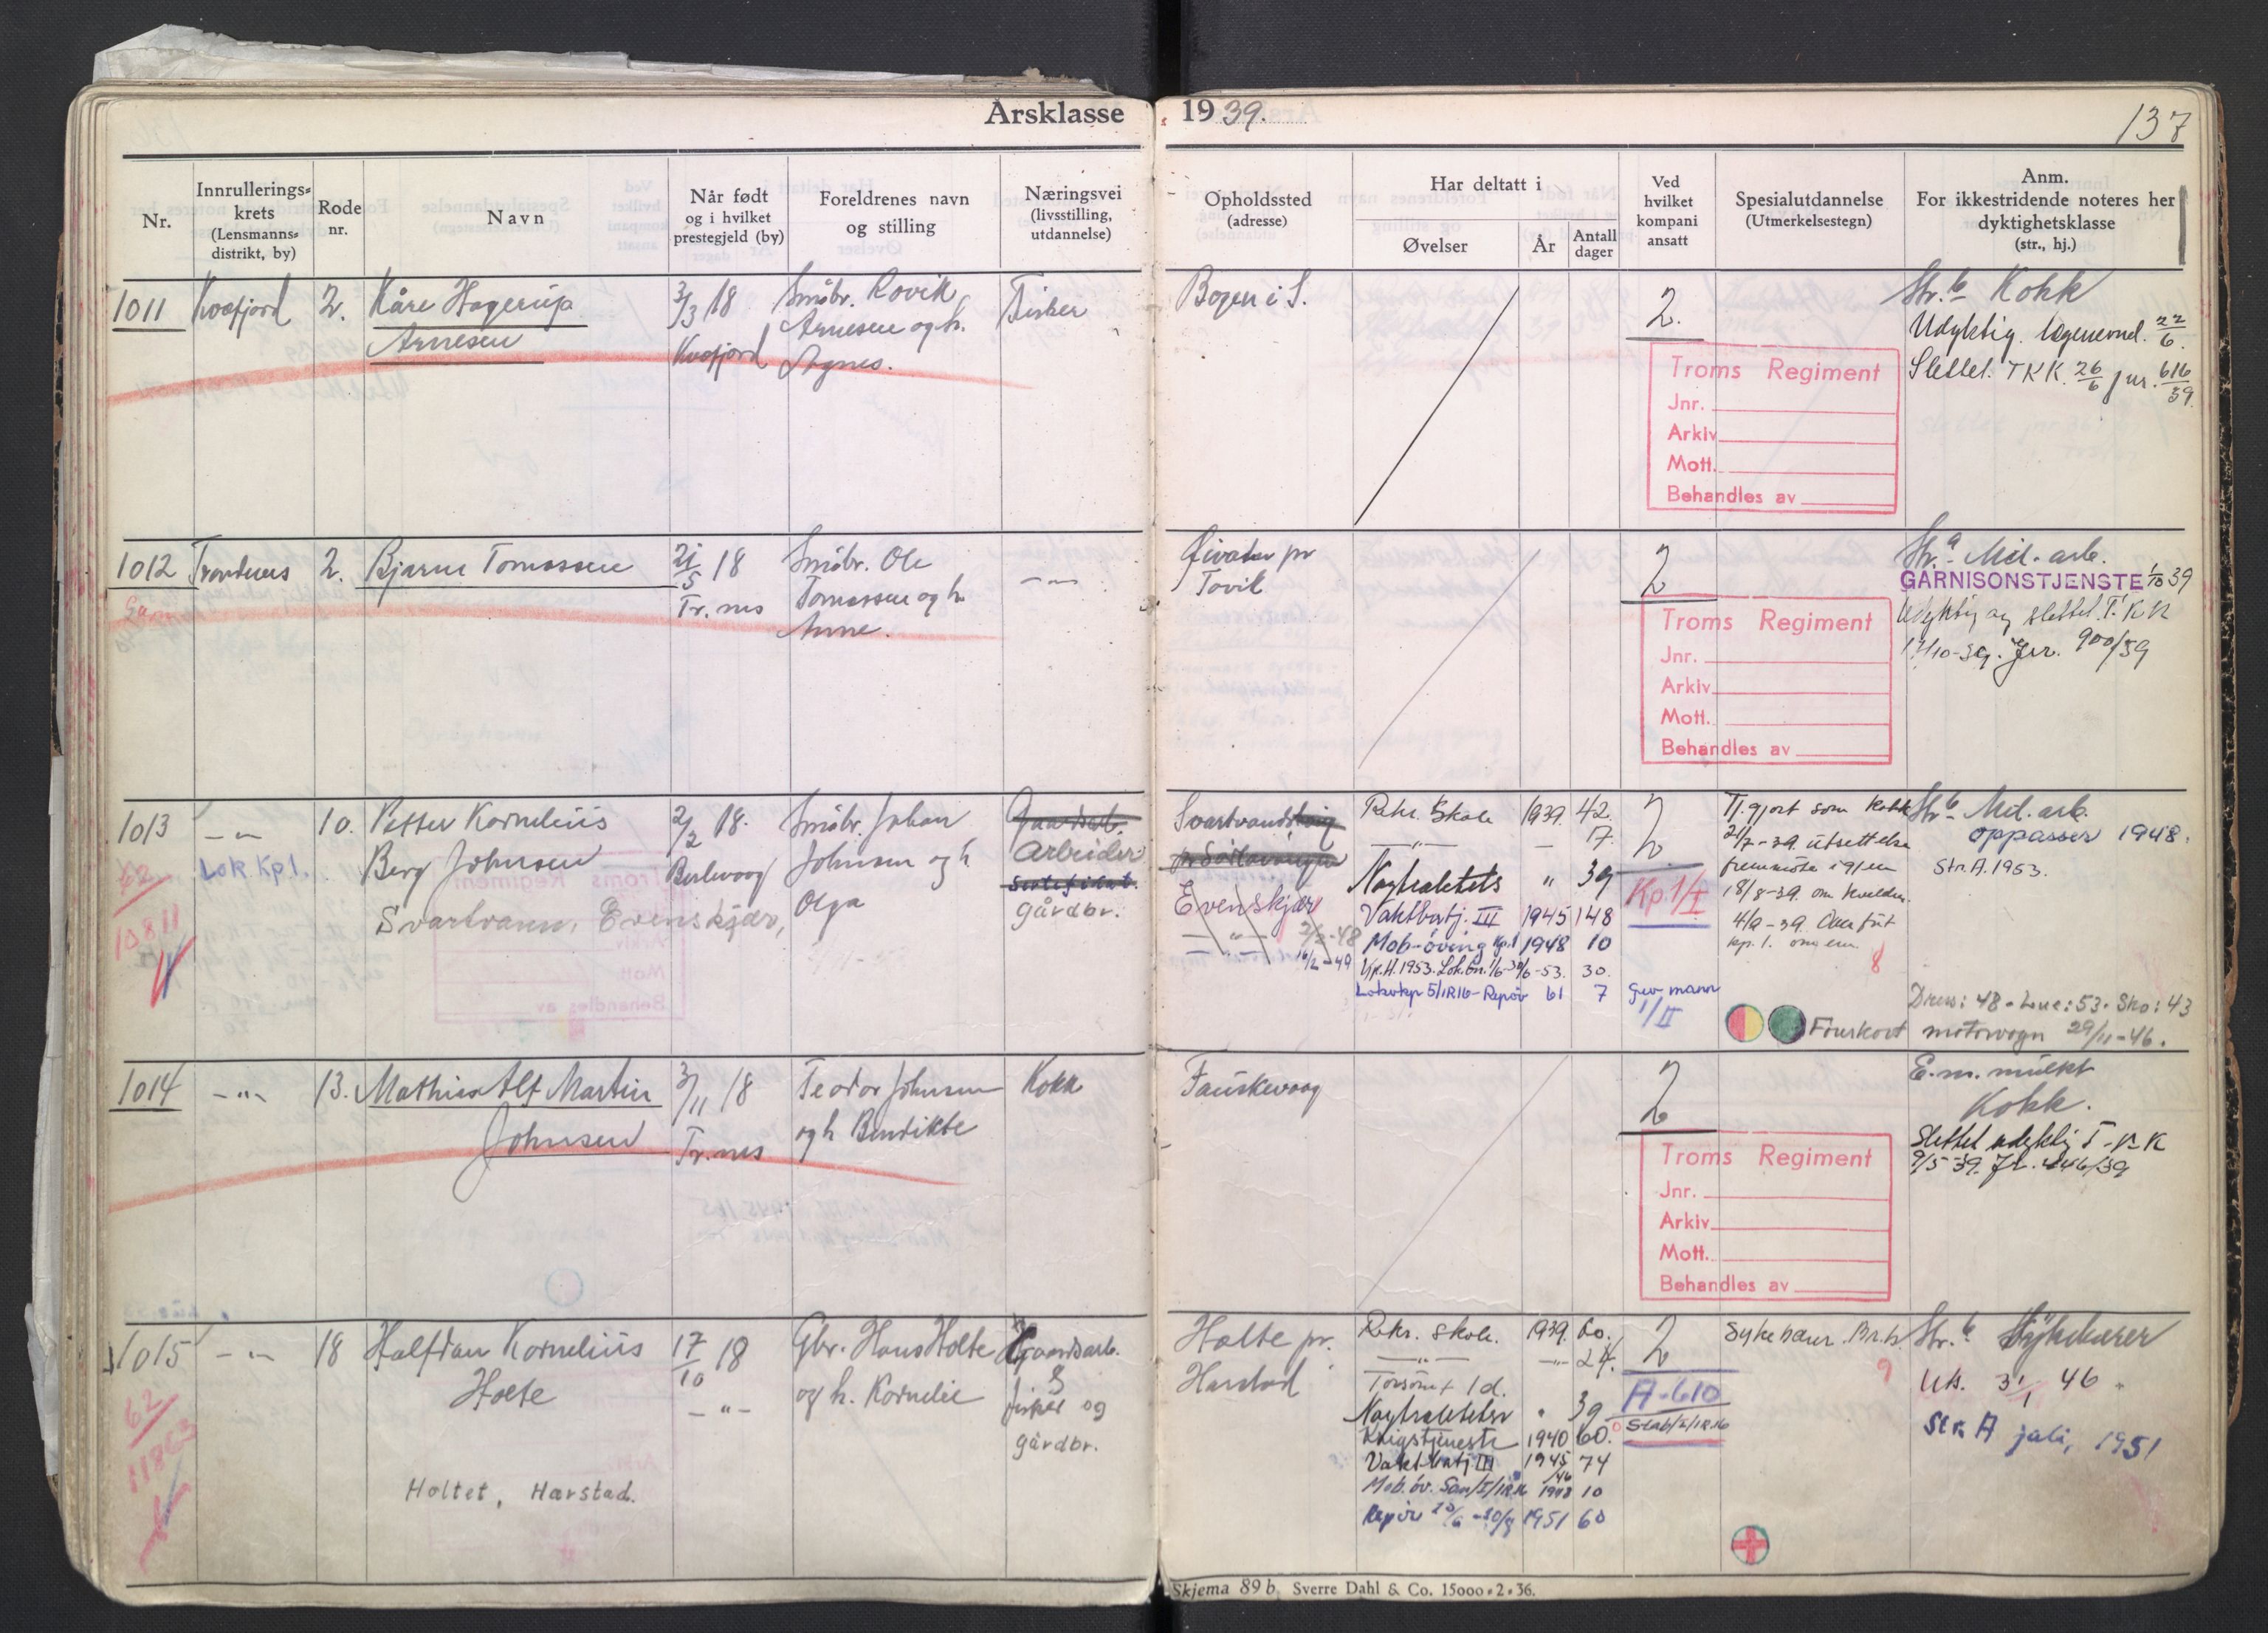 Årsklasse 1939.
137
Nr.
Innrullerings-
krets
(Lensmanns-
distrikt, by)
Rode
nr.
Navn
Når født
og i hvilket
prestegjeld (by)
Foreldrenes navn
og stilling
Næringsvei
(livsstilling,
utdannelse)
Opholdssted
(adresse)
Har deltatt i
Øvelser
År
Antall
dager
Ved
hvilket
kompani
ansatt
Spesialutdannelse
(Utmerkelsestegn)
Anm.
For ikkestridende noteres her
dyktighetsklasse
(str., hj.)
1011
Kvæfjord
2.
Kåre Hagerup
Arnesen
3/3 18
Kvæfjord
Småbr. Rovik
Arnesen og h.
Agnes.
Fisker
Bogen i S.
2.
Troms Regiment
Jnr.
Arkiv
Mott.
Behandles av
Str. b Kokk
Udyktig. legenevnd. 22/6.
Slettet. TKK. 26/6 jnr. 616/39.
1012
Trondenes
2.
Bjarne Tomassen
21/5 18
Tr.nes
Småbr. Ole
Tomassen og h.
Anne.
— " —
Tovik
2
Troms Regiment
Jnr.
Arkiv
Mott.
Behandles av
Str. a Mil. arb.
GARNISONSTJENSTE 1/10 39
Udyktig og slettet. T.K.K
17/10-39. Jnr. 900/39
1013
— " —
Lok Kp 1.
62
10811
10.
Petter Kornelius
Berg Johnsen
Svartvann, Evenskjær,
2/2 18.
Berlevaag
Småbr. Johan
Johnsen og h
Olga
Gaardsarb.
Arbeider
Sertifikat.
gårdbr.
Evenskjær
— " — 2/2-48
— " — 16/2-49
Rekr. Skole 1939. 42.
— " — — 17.
Nøytralitets " 39
Vaktbatj. III 1945 148
Mob-øving Kp.1 1948 10
30.
Lokvkp 5/IR16- Repøv 61 7
2
Kp.1/I
Gev mann
1/II
Tj.gjort som Kokk
21/7-39. utsettelse
fremmøte igjen
18/8-39. om kvelden.
4/9-39. Overført
kp. 1.
8
Førerkort motorvogn 29/11-46.
Str. b Mil. arb.
oppasser 1948.
Str. A. 1953.
Dress: 48 - Lue: 53. Sko: 43
1014
— " —
13.
Mathias Alf Martin
Johnsen
3/11 18
Tr.nes
Teodor Johnsen
og h Bendikte
Kokk
Fauskevaag
2
Troms Regiment
Jnr.
Arkiv
Mott.
Behandles av
E.m. mulkt
Kokk.
Slettet udyktig T-K K
9/5-39. Jr. 446/39
1015
— " —
62
11863
18
Halfdan Kornelius
Holte
Holtet, Harstad.
17/10 18
— " —
Gbr. Hans Holte
og h. Kornelie
Gaardsarb.
fisker og
gårdbr.
Holte pr.
Harstad
Rekr. skole. 1939. 60.
— " — — " — 24.
Forsømt 1 d.
Nøytralitetsv " 39
Krigstjeneste 1940 60.
Vaktbatj III 1945/46 74
Mob. øv. San/I/IR16 1948 10
Repøv 20/6 1951 60
2
A-610
Stab/I/IR16
Sykebærer
9
Str. b Sykebærer
Uts. 3/1 46
Str. A juli, 1951
Skjema 89 b. Sverre Dahl & Co. 15000-2-36.